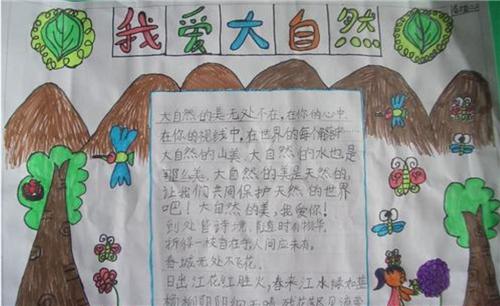 我爱大自然
大自然的美无处不在,在你的心中,
在你的视线中,在世界的每个角落
大自然的山美、大自然的水也是
那么美。大自然的美是天然的,
让我们共同保护天然的世界
吧!大自然的美,我爱你!
到处皆诗境,随时有物华
折得一枝自在手,人间应未有。
春城无处不飞花。
日出江花红胜火,春来江水绿如蓝